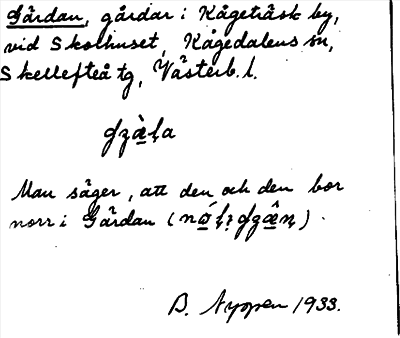 Gärdan, gårdar i Kågeträsk by,
vid Skolhuset, Kågedalens sn,
Skellefteå tg, Västerb. l.
Man säger, att den och den bor
norr i Gärdan
B. Nyppen 1933.